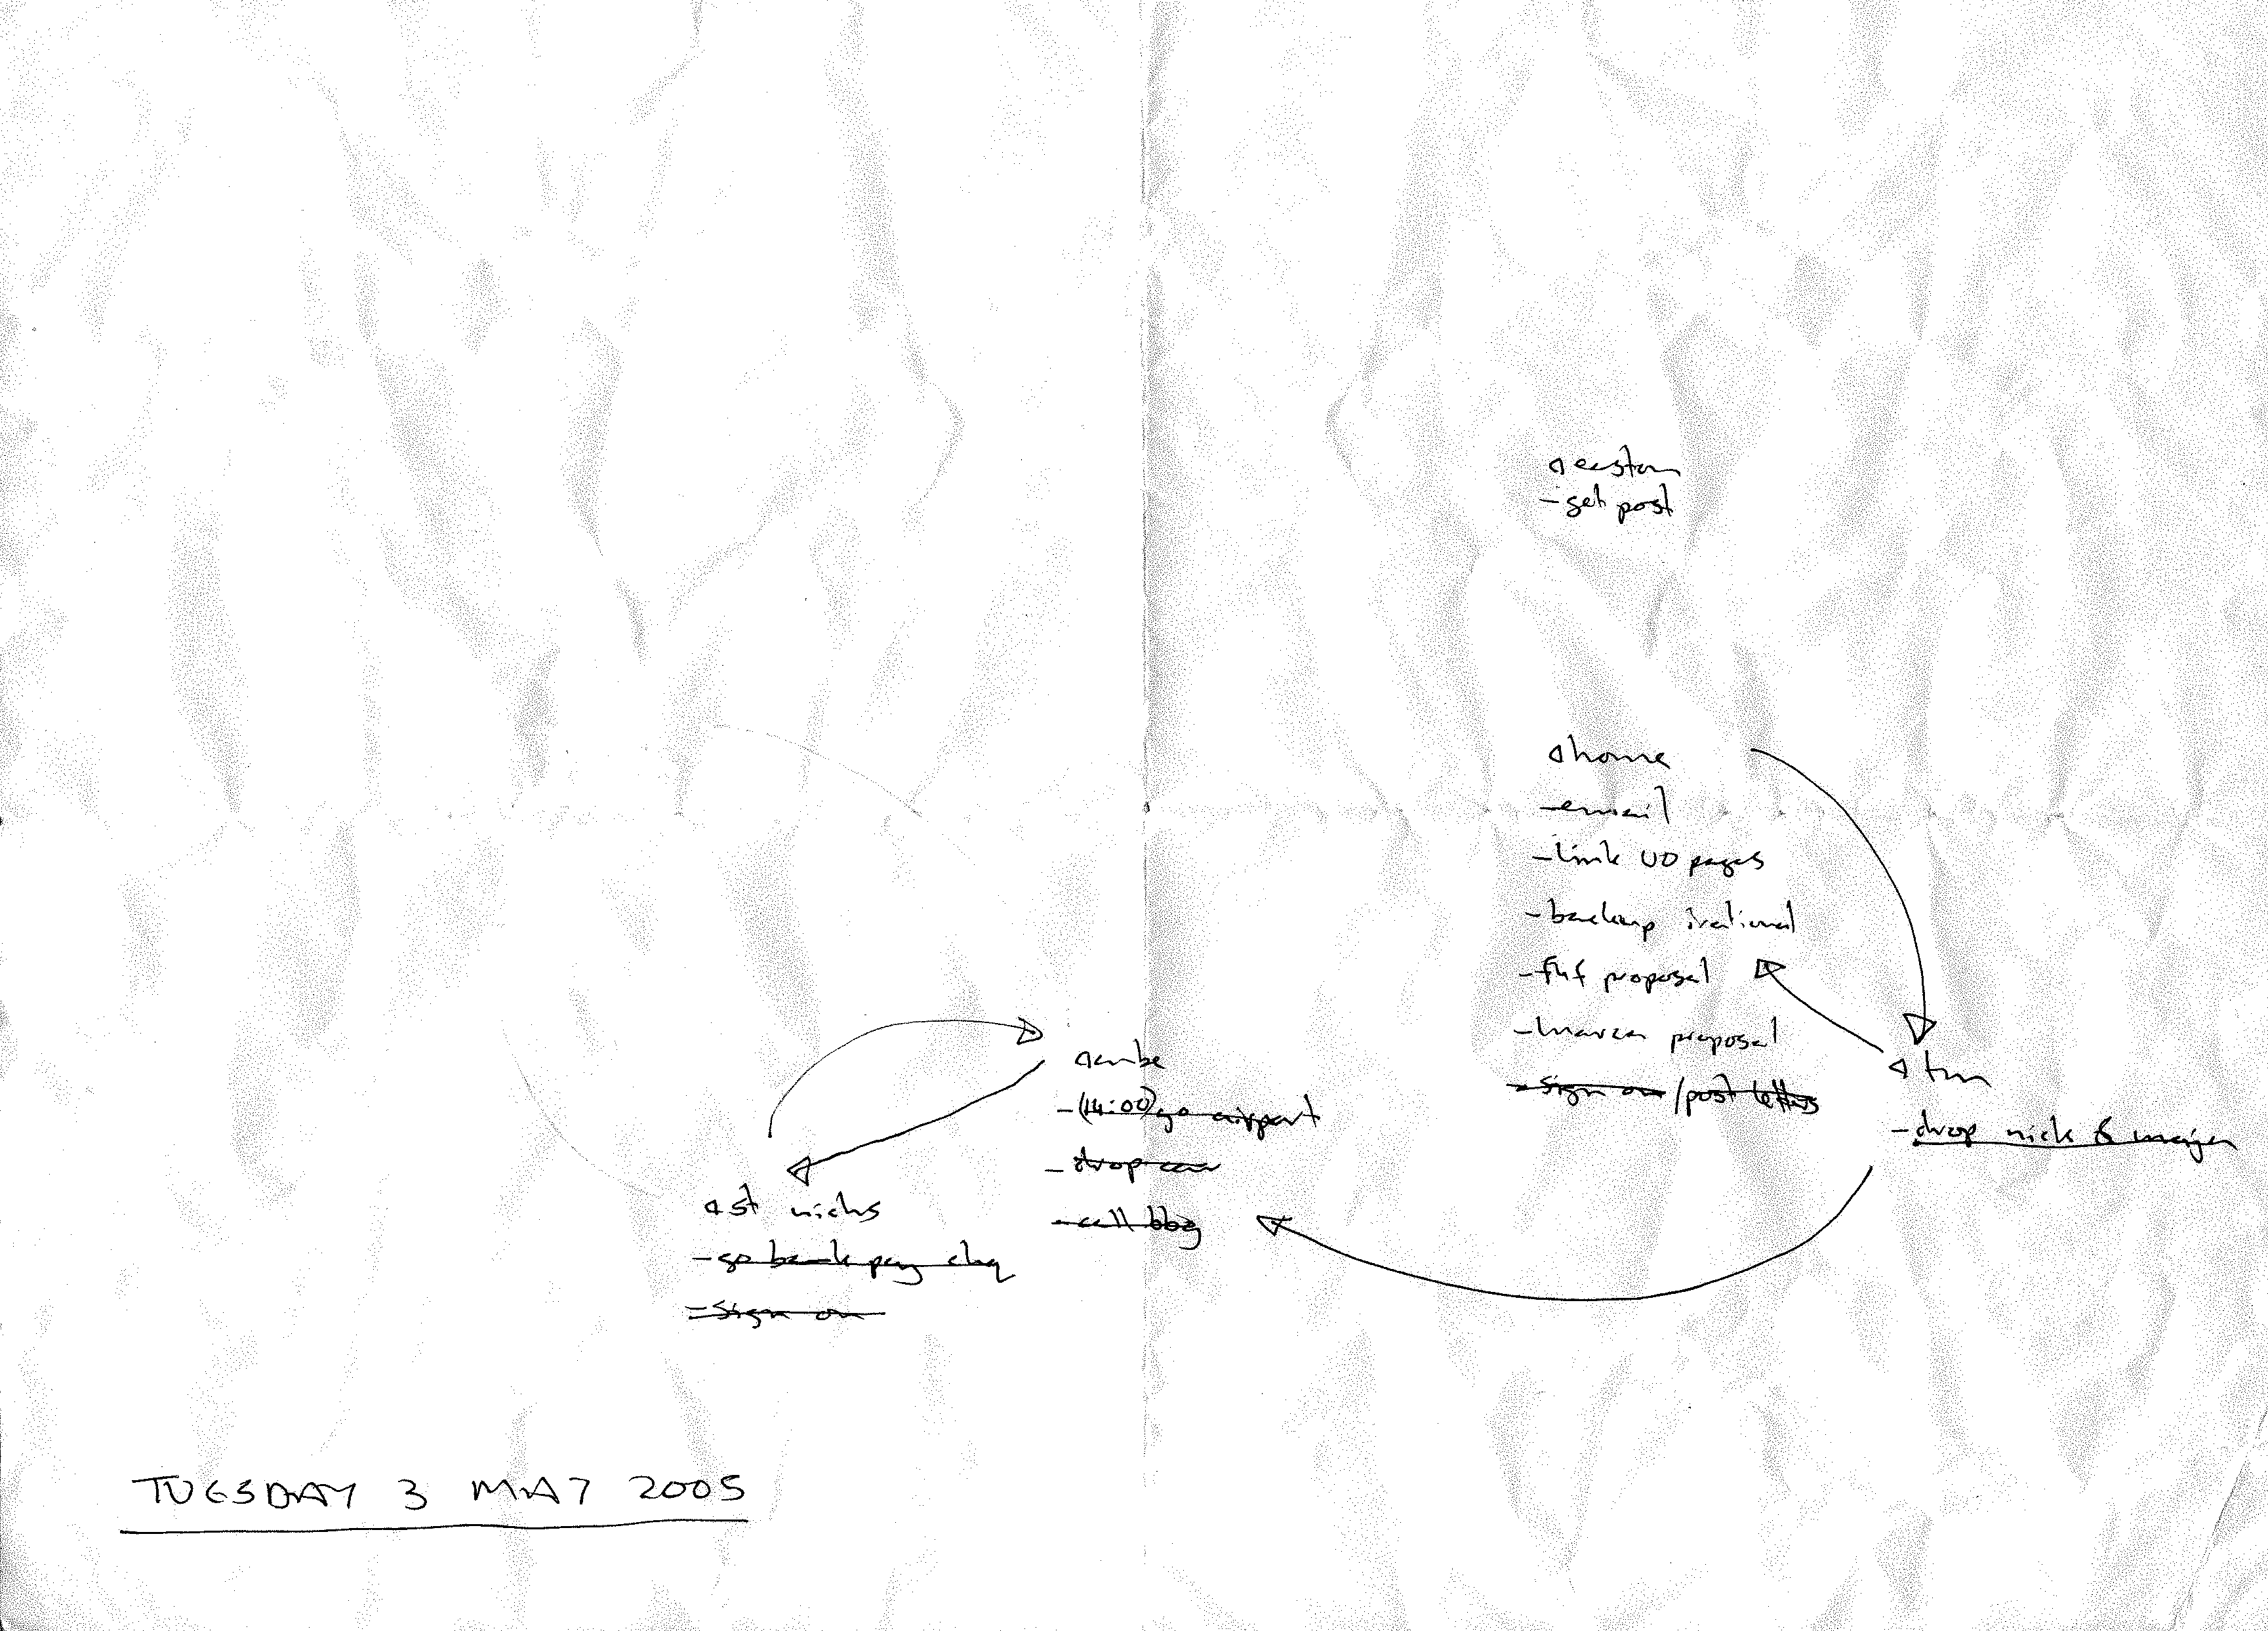 easton
- get post
home
- email
- link UO pages
- backup irational
- proposal
- proposal
- sign on / post letters
cube
- (14:00) go airport
- drop car
- call bbg
tm
- drop nick &
st nicks
- go bank pay chq
- sign on
TUESDAY 3 MAY 2005